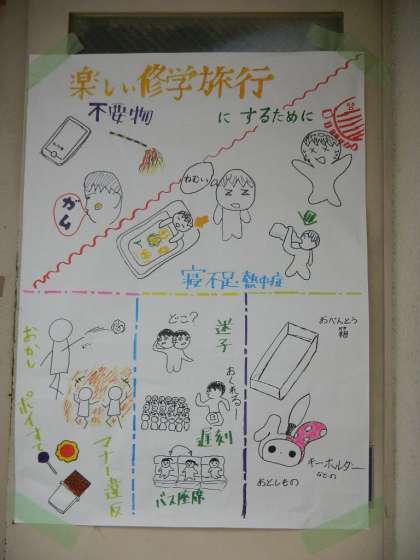 楽しい修学旅行
不要物
にするために
ガム
ねむい
寝不足・熱中症
おかし
ポイすて
マナー違反
どこ?
迷子
おくれるー
遅刻
バス座席
おべんとう
箱
キーホルダー
などの
おとしもの